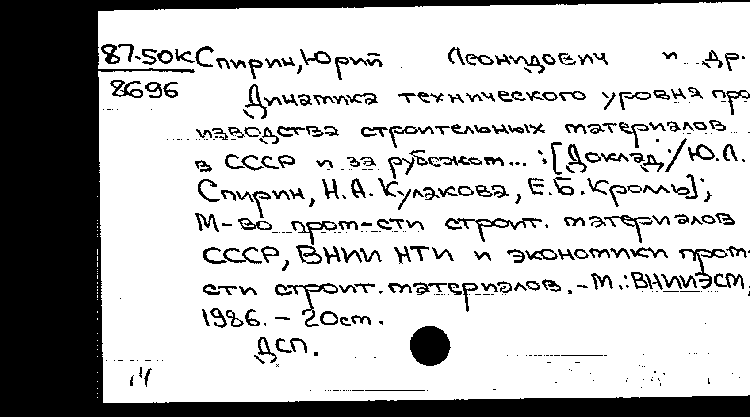 87.50К Спирин, Юрий Леонидович и др.
8696
Динамика технического уровня про-
изводства строительных материалов
в СССР и за рубежом... : [Доклад / Ю.Л.
Спирин, Н.А. Кулакова, Е.Б. Кромль];
М-во пром-сти строит. материалов
СССР, ВНИИ НТИ и экономики пром-
сти строит. материалов. - М.: ВНИИЭСМ,
1986. - 20 см.
ДСП.
14